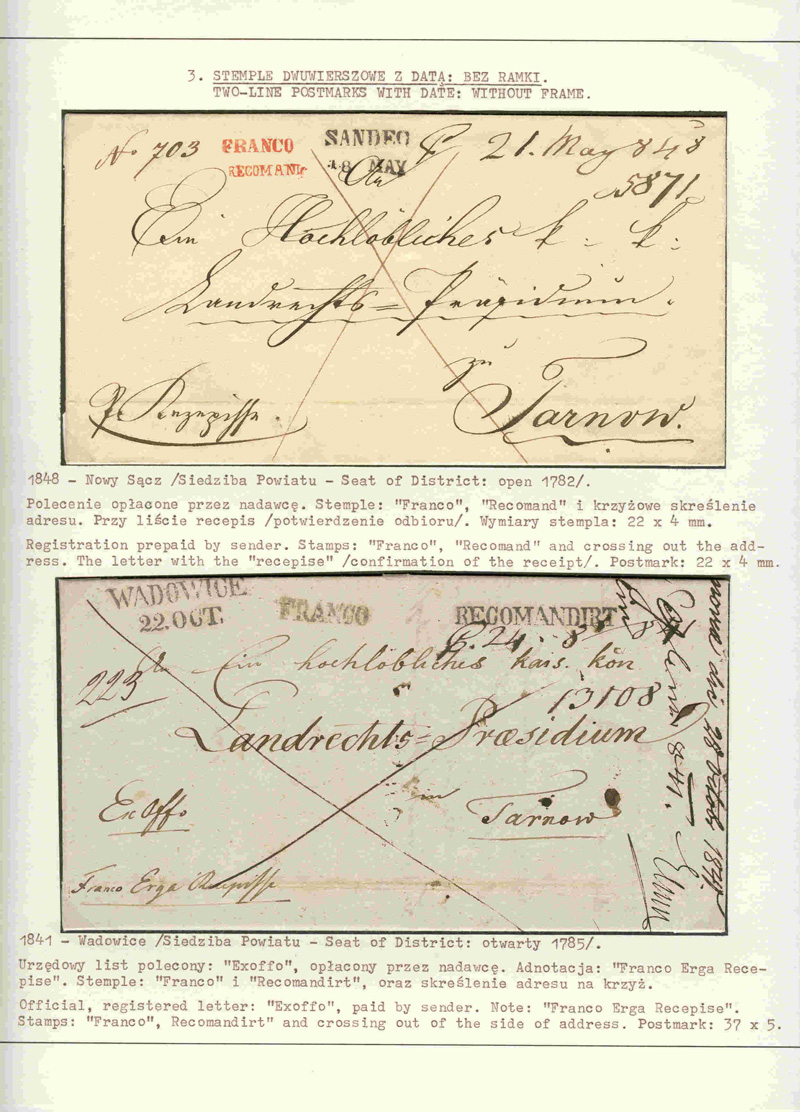 3. STEMPLE DWUWIERSZOWE Z DATĄ: BEZ RAMKI.
TWO-LINE POSTMARKS WITH DATE: WITHOUT FRAME.
No 703 FRANCO SANDEC 21. May 848
RECOMAND 18 MAY
5871
Ein Hochlöbliches k. k.
Landrechts=Präsidium.
zu
Tarnow.
1848 - Nowy Sącz /Siedziba Powiatu - Seat of District: open 1782/.
Polecenie opłacone przez nadawcę. Stemple: "Franco", "Recomand" i krzyżowe skreślenie
adresu. Przy liście recepis /potwierdzenie odbioru/. Wymiary stempla: 22 x 4 mm.
Registration prepaid by sender. Stamps: "Franco", "Recomand" and crossing out the add-
ress. The letter with the "recepise" /confirmation of the receipt/. Postmark: 22 x 4 mm.
WADOWICE
22.OCT. FRANCO RECOMANDIRT
223 Ein hochlöbliches kais. kön
13108
Landrechts=Præsidium
in
Tarnow
Ex Offo
Franco Erga Recepisse
1841 - Wadowice /Siedziba Powiatu - Seat of District: otwarty 1785/.
Urzędowy list polecony: "Exoffo", opłacony przez nadawcę. Adnotacja: "Franco Erga Rece-
pise". Stemple: "Franco" i "Recomandirt", oraz skreślenie adresu na krzyż.
Official, registered letter: "Exoffo", paid by sender. Note: "Franco Erga Recepise".
Stamps: "Franco", Recomandirt" and crossing out of the side of address. Postmark: 37 x 5.